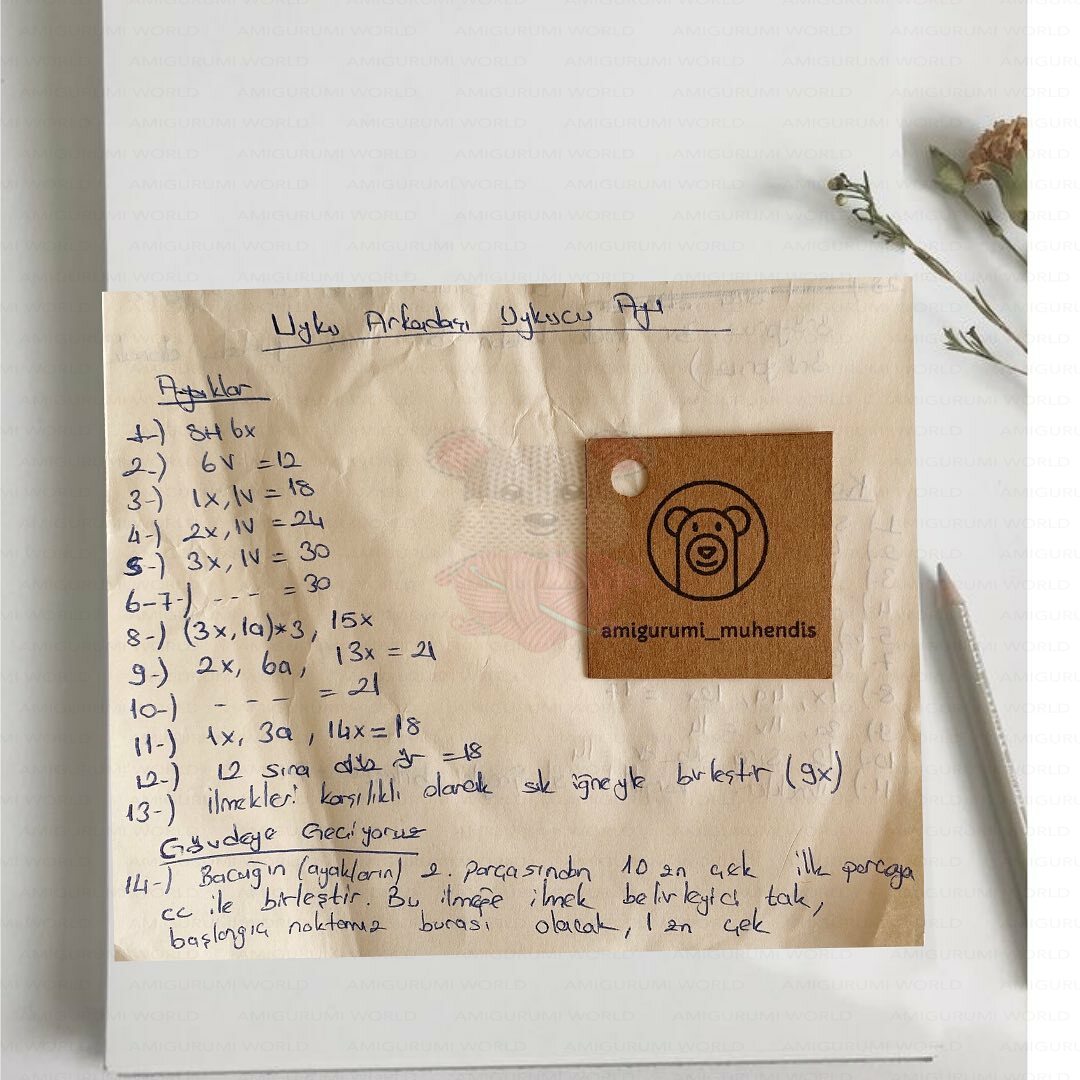 Uyku Arkadaşı Uykucu Ayı
Ayaklar
1-) SH 6x
2-) 6V =12
3-) 1x,1V = 18
4-) 2x,1V = 24
5-) 3x,1V = 30
6-7-) --- = 30
8-) (3x,1a)*3, 15x
9-) 2x, 6a, 13x = 21
10-) --- = 21
11-) 1x, 3a, 14x = 18
12-) 12 sıra düz ör =18
13-) ilmekleri karşılıklı olarak sık iğneyle birleştir (9x)
Gövdeye Geçiyoruz
14-) Bacağın (ayakların) 2. parçasından 10 zn çek ilk parçaya
cc ile birleştir. Bu ilmeğe ilmek belirleyici tak,
başlangıç noktamız burası olacak, 1 zn çek
amigurumi_muhendis
AMIGURUMI WORLD